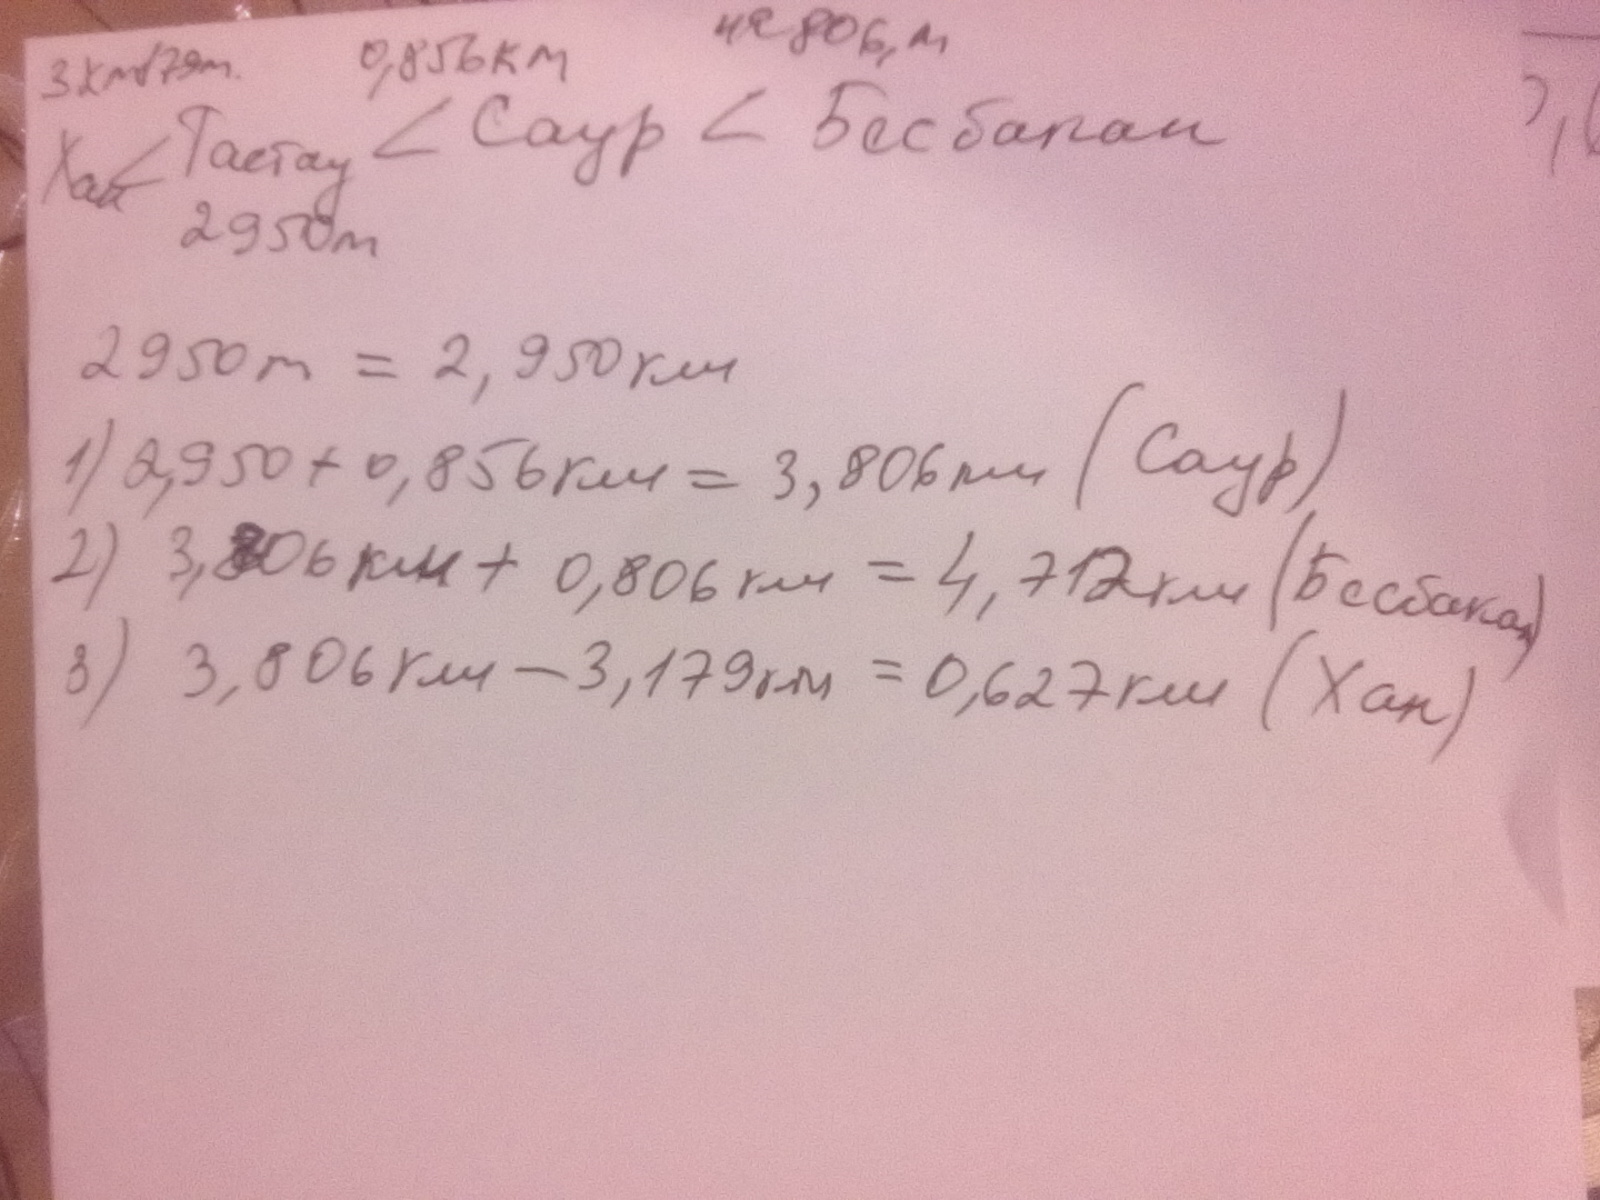 3 км 179 м. 0,856 км на 806, м
Хан < Тастау < Саур < Бесбакан
2950 м
2950 м = 2,950 км
1) 2,950 + 0,856 км = 3,806 км (Саур)
2) 3,806 км + 0,806 км = 4,712 км (Бесбакан)
3) 3,806 км - 3,179 км = 0,627 км (Хан)